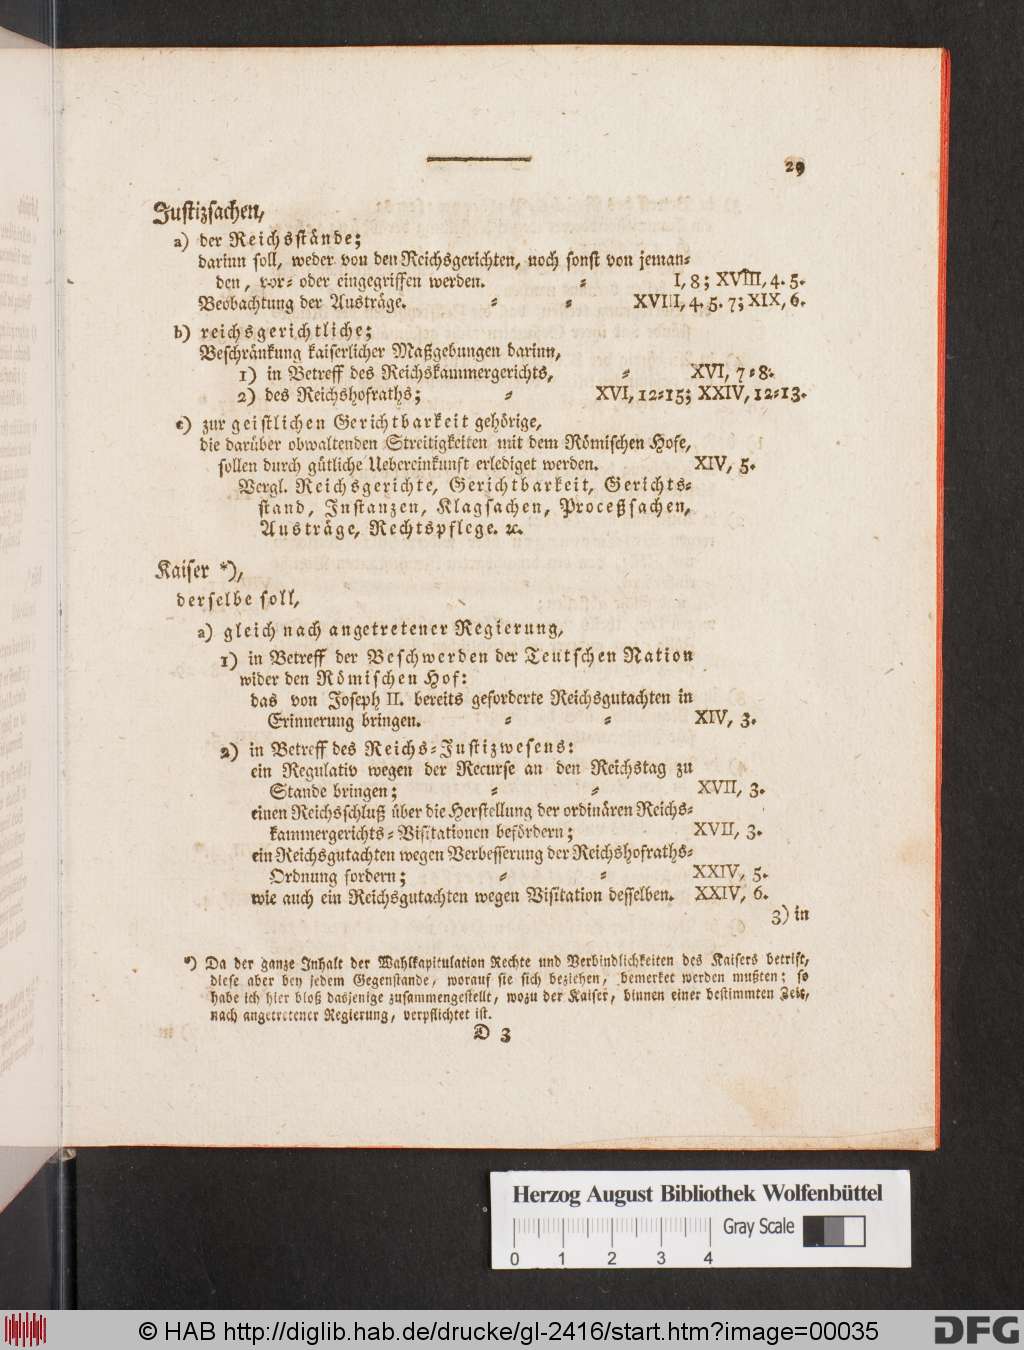 29
Justizsachen,
a) der Reichsstände;
darinn soll, weder von den Reichsgerichten, noch sonst von jeman-
den, vor- oder eingegriffen werden. - I, 8; XVIII, 4. 5.
Beobachtung der Austräge. - - XVIII, 4. 5. 7; XIX, 6.
b) reichsgerichtliche;
Beschränkung kaiserlicher Maßgebungen darinn,
1) in Betreff des Reichskammergerichts, - XVI, 7-8.
2) des Reichshofraths; - XVI, 12-15; XXIV, 12-13.
c) zur geistlichen Gerichtbarkeit gehörige,
die darüber obwaltenden Streitigkeiten mit dem Römischen Hofe,
sollen durch gütliche Uebereinkunft erlediget werden. XIV, 5.
Vergl. Reichsgerichte, Gerichtbarkeit, Gerichts-
stand, Instanzen, Klagsachen, Proceßsachen,
Austräge, Rechtspflege. ꝛc.
Kaiser *),
derselbe soll,
a) gleich nach angetretener Regierung,
1) in Betreff der Beschwerden der Teutschen Nation
wider den Römischen Hof:
das von Joseph II. bereits geforderte Reichsgutachten in
Erinnerung bringen. - - XIV, 3.
2) in Betreff des Reichs-Justizwesens:
ein Regulativ wegen der Recurse an den Reichstag zu
Stande bringen; - - XVII, 3.
einen Reichsschluß über die Herstellung der ordinären Reichs-
kammergerichts-Visitationen befördern; XVII, 3.
ein Reichsgutachten wegen Verbesserung der Reichshofraths-
Ordnung fordern; - - XXIV, 5.
wie auch ein Reichsgutachten wegen Visitation desselben. XXIV, 6.
3) in
*) Da der ganze Inhalt der Wahlkapitulation Rechte und Verbindlichkeiten des Kaisers betrift,
diese aber bey jedem Gegenstande, worauf sie sich beziehen, bemerket werden mußten; so
habe ich hier bloß dasjenige zusammengestellt, wozu der Kaiser, binnen einer bestimmten Zeit,
nach angetretener Regierung, verpflichtet ist.
D 3
Herzog August Bibliothek Wolfenbüttel
Gray Scale
0 1 2 3 4
© HAB http://diglib.hab.de/drucke/gl-2416/start.htm?image=00035
DFG